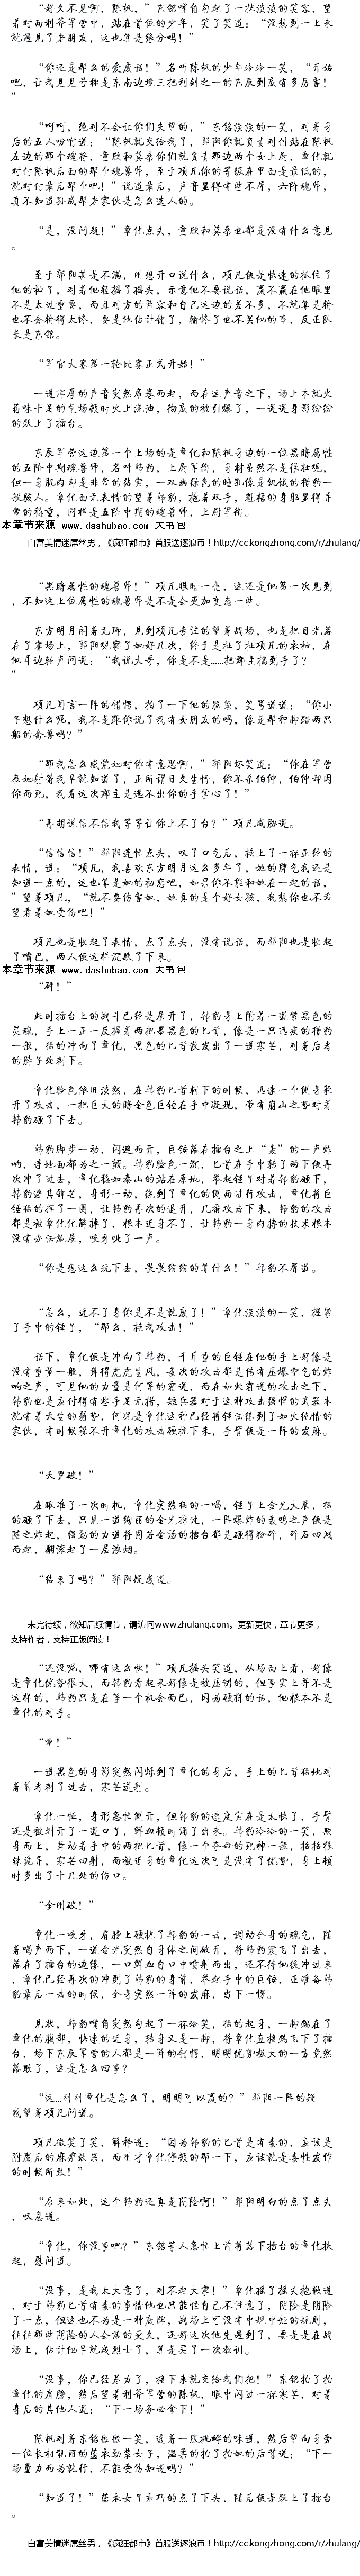 “好久不见啊，陈枫，”东铭嘴角勾起了一抹淡淡的笑容，望
着对面利斧军营中，站在首位的少年，笑了笑道：“没想到一上来
就遇见了老朋友，这也算是缘分吗！”
“你还是那么的爱废话！”名叫陈枫的少年冷冷一笑，“开始
吧，让我见见号称是东南边境三把利剑之一的东辰到底有多厉害！
”
“呵呵，绝对不会让你们失望的，”东铭淡淡的一笑，对着身
后的五人吩咐道：“陈枫就交给我了，郭阳你就负责对付站在陈枫
左边的那个魂将，童欣和莫桑你们就负责那边两个女上尉，章化就
对付陈枫后面的那个魂兽师，至于项凡你的等级在里面是最低的，
就对付最后那个吧！”说道最后，声音显得有些不屑，六阶魂师，
真不知道孙威那老家伙是怎么选人的。
“是，没问题！”章化点头，童欣和莫桑也都是没有什么意见
。
至于郭阳甚是不满，刚想开口说什么，项凡便是快速的抓住了
他的袖子，对着他轻摇了摇头，示意他不要说话，赢不赢在他眼里
不是太过重要，而且对方的阵容和自己这边的差不多，不就算是输
也不会输得太惨，要是他估计错了，输惨了也不关他的事，反正队
长是东铭。
“军官大赛第一轮比赛正式开始！”
一道浑厚的声音突然席卷而起，而在这声音之下，场上本就火
药味十足的气场顿时火上浇油，彻底的被引爆了，一道道身影纷纷
的跃上了擂台。
东辰军营这边第一个上场的是章化和陈枫身边的一位黑暗属性
的五阶中期魂兽师，名叫韩豹，上尉军衔，身材虽然不是很壮观，
但一身肌肉却是非常的结实，一双幽绿色的瞳孔像是饥饿的猎豹一
般骇人。章化面无表情的望着韩豹，抱着双手，魁梧的身躯显得异
常的稳重，同样是五阶中期的魂兽师，上尉军衔。
本章节来源 www.dashubao.com 大书包
白富美情迷屌丝男，《疯狂都市》首服送逐浪币！http://cc.kongzhong.com/r/zhulang/
“黑暗属性的魂兽师！”项凡眼睛一亮，这还是他第一次见到
，不知这上位属性的魂兽师是不是会更加变态一些。
东方明月闲着无聊，见到项凡专注的望着战场，也是把目光落
在了赛场上，郭阳观察了她好几次，终于是扯了扯项凡的衣袖，在
他耳边轻声问道：“我说大哥，你是不是……把郡主搞到手了？
”
项凡闻言一阵的错愕，拍了一下他的脑袋，笑骂道道：“你小
子想什么呢，我不是跟你说了我有女朋友的吗，像是那种脚踏两只
船的禽兽吗？”
“那我怎么感觉她对你有意思啊，”郭阳坏笑道：“你在军营
教她射箭我早就知道了，正所谓日久生情，你不杀伯仲，伯仲却因
你而死，我看这次郡主是逃不出你的手掌心了！”
“再胡说信不信我等等让你上不了台？”项凡威胁道。
“信信信！”郭阳连忙点头，叹了口气后，换上了一抹正经的
表情，道：“项凡，我喜欢东方明月这么多年了，她的脾气我还是
知道一点的，这也算是她的初恋吧，如果你不能和她在一起的话，
”望着项凡，“就不要伤害她，她真的是个好女孩，我想你也不希
望看着她受伤吧！”
项凡也是收起了表情，点了点头，没有说话，而郭阳也是收起
了嘴巴，两人便这样沉默了下来。
本章节来源 www.dashubao.com 大书包
“砰！”
此时擂台上的战斗已经是展开了，韩豹身上附着一道紫黑色的
灵魂，手上一正一反握着两把墨黑色的匕首，像是一只迅疾的猎豹
一般，猛的冲向了章化，黑色的匕首散发出了一道寒芒，对着后者
的脖子处刺下。
章化脸色依旧淡然，在韩豹匕首刺下的时候，迅速一个侧身躲
开了攻击，一把巨大的暗金色巨锤在手中凝现，带有崩山之势对着
韩豹砸了下去。
韩豹脚步一动，闪避而开，巨锤落在擂台之上“轰”的一声炸
响，连地面都为之一颤。韩豹脸色一沉，匕首在手中转了两下便再
次冲了过去，章化稳如泰山的站在原地，举起锤子对着韩豹砸下，
韩豹避其锋芒，身形一动，绕到了章化的侧面进行攻击，章化将巨
锤猛的挥了一圈，让韩豹再次的退开，几番攻击下来，韩豹的攻击
都是被章化化解掉了，根本近身不了，让韩豹一身肉搏的技术根本
没有办法施展，咬牙呲了一声。
“你是想这么玩下去，畏畏缩缩的算什么！”韩豹不屑道。
“怎么，近不了身你是不是就废了！”章化淡淡的一笑，握紧
了手中的锤子，“那么，换我攻击！”
话下，章化便是冲向了韩豹，千斤重的巨锤在他的手上好像是
没有重量一般，舞得虎虎生风，每次的攻击都是传有压爆空气的炸
响之声，可见他的力量是何等的霸道，而在如此霸道的攻击之下，
韩豹也是应付得有些手足无措，短兵器对于这种攻击强悍的武器本
就有着天生的弱势，何况是章化这种已经将锤法练到了如火纯情的
家伙，有时候轻不开章化的攻击硬抗下来，手臂便是一阵的发麻。
“天罡破！”
在瞅准了一次时机，章化突然猛的一喝，锤子上金光大展，猛
的砸了下去，只见一道绚丽的金光掠过，一阵爆炸的轰鸣之声便是
随之炸起，强劲的力道将固若金汤的擂台都是砸得粉碎，碎石四溅
而起，翻滚起了一层浓烟。
“结束了吗？”郭阳疑惑道。
未完待续，欲知后续情节，请访问www.zhulang.com。更新更快，章节更多，
支持作者，支持正版阅读！
“还没呢，哪有这么快！”项凡摇头笑道，从场面上看，好像
是章化优势很大，而韩豹看起来好像是被压制的，但事实上并不是
这样的，韩豹只是在等一个机会而已，因为硬拼的话，他根本不是
章化的对手。
“唰！”
一道黑色的身影突然闪烁到了章化的身后，手上的匕首猛地对
着前者刺了过去，寒芒逼射。
章化一怔，身形急忙侧开，但韩豹的速度实在是太快了，手臂
还是被划开了一道口子，鲜血顿时涌了出来。韩豹冷冷的一笑，欺
身而上，舞动着手中的两把匕首，像一个夺命的死神一般，招招狠
辣诡异，寒芒四射，而被近身的章化这次可是没有了优势，身上顿
时多出了十几处的伤口。
“金刚破！”
章化一咬牙，肩膀上硬抗了韩豹的一击，调动全身的魂气，随
着喝声而下，一道金光突然自身体之间破开，将韩豹震飞了出去，
落在了擂台的边缘，一口鲜血自口中喷射而出，还不待他缓冲过来
，章化已经再次的冲到了韩豹的身前，举起手中的巨锤，正准备韩
豹最后一击的时候，全身突然一阵的发麻，当下一愣。
见状，韩豹嘴角突然勾起了一抹冷笑，猛的起身，一脚踹在了
章化的腹部，快速的近身，转身又是一脚，将章化直接踹飞下了擂
台，场下东辰军营的人都是一阵的错愕，明明优势极大的一方竟然
落败了，这是怎么回事？
“这…刚刚章化是怎么了，明明可以赢的？”郭阳一阵的疑
惑望着项凡问道。
项凡微笑了笑，解释道：“因为韩豹的匕首是有毒的，应该是
附魔后的麻痹效果，而刚才章化停顿的那一下，应该就是毒性发作
的时候所致！”
“原来如此，这个韩豹还真是阴险啊！”郭阳明白的点了点头
，叹息道。
“章化，你没事吧？”东铭等人急忙上前将落下擂台的章化扶
起，慰问道。
“没事，是我太大意了，对不起大家！”章化摇了摇头抱歉道
，对于韩豹匕首有毒的事情他也只能怪自己不注意了，阴险是阴险
了一点，但这也不为是一种底牌，战场上可没有中规中矩的规则，
往往那些阴险的人会活的更久，还好这次他是遇到了，要是是在战
场上，估计他早就成烈士了，算是买了一次教训。
“没事，你已经尽力了，接下来就交给我们把！”东铭拍了拍
章化的肩膀，然后望着利斧军营的陈枫，眼中闪过一抹寒芒，对着
身后的其他人道：“下一场务必拿下！”
陈枫对着东铭微微一笑，透着一股挑衅的味道，然后望向身旁
一位长相靓丽的蓝衣劲装女子，温柔的拍了拍她的后背道：“下一
场量力而为就行，不能受伤知道吗？”
“知道了！”蓝衣女子乖巧的点了下头，随后便是跃上了擂台
。
白富美情迷屌丝男，《疯狂都市》首服送逐浪币！http://cc.kongzhong.com/r/zhulang/